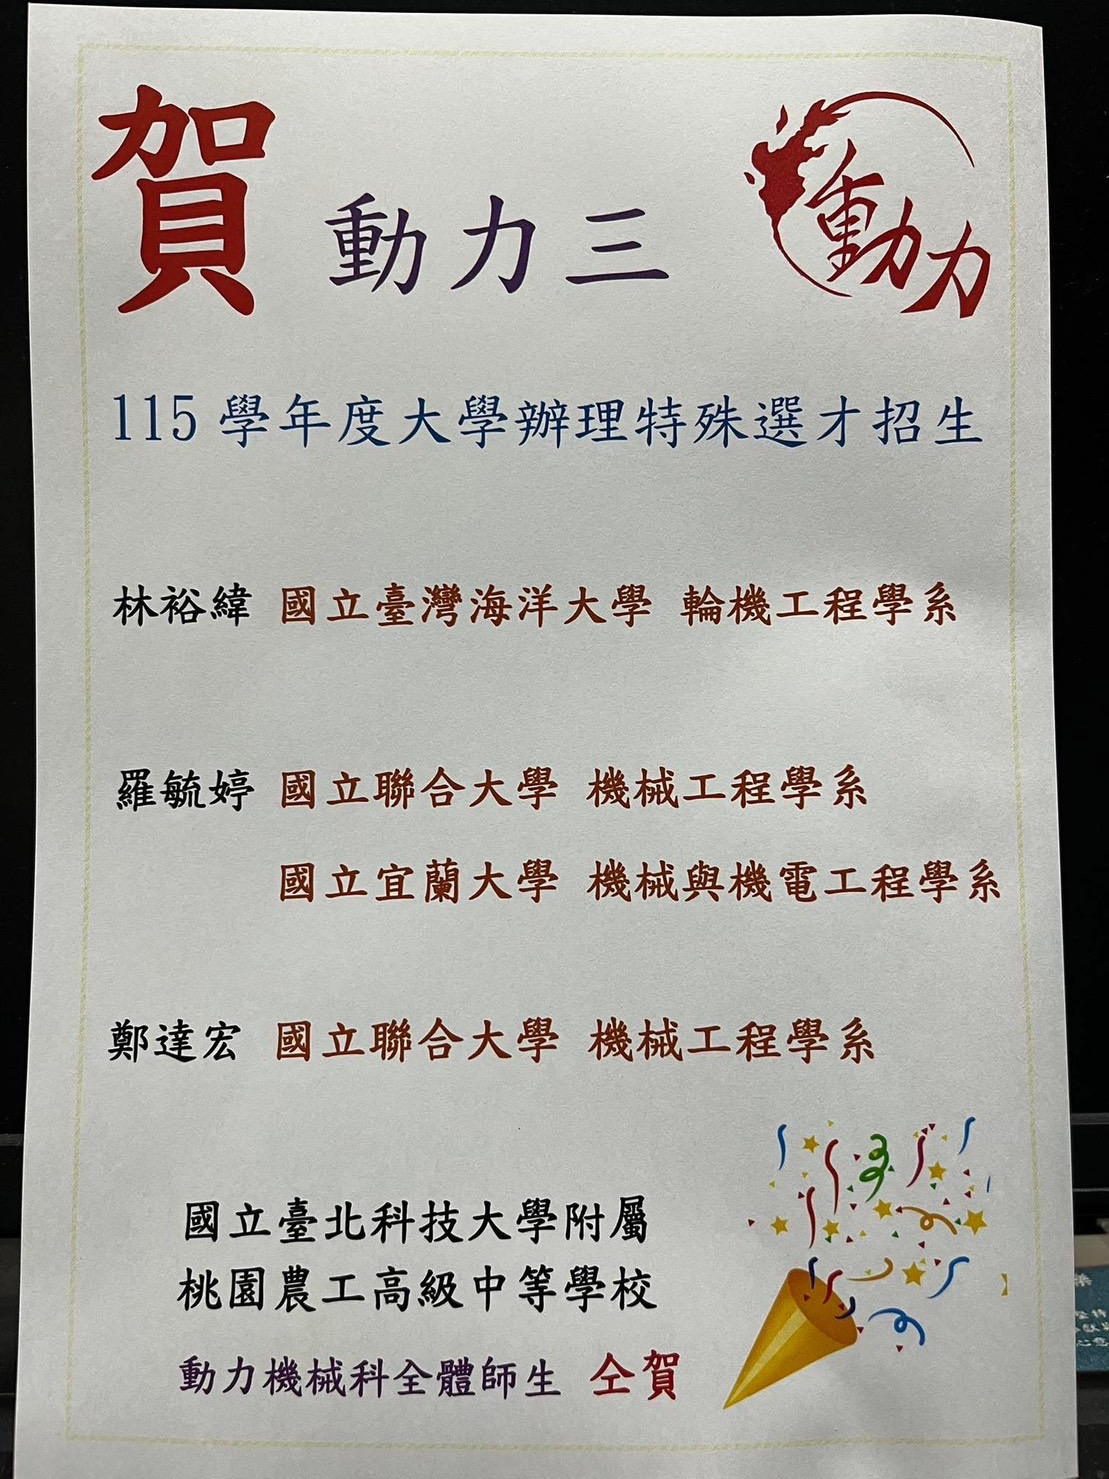 賀 動力三 動力
115 學年度大學辦理特殊選才招生
林裕緯 國立臺灣海洋大學 輪機工程學系
羅毓婷 國立聯合大學 機械工程學系
國立宜蘭大學 機械與機電工程學系
鄭達宏 國立聯合大學 機械工程學系
國立臺北科技大學附屬
桃園農工高級中等學校
動力機械科全體師生 仝賀